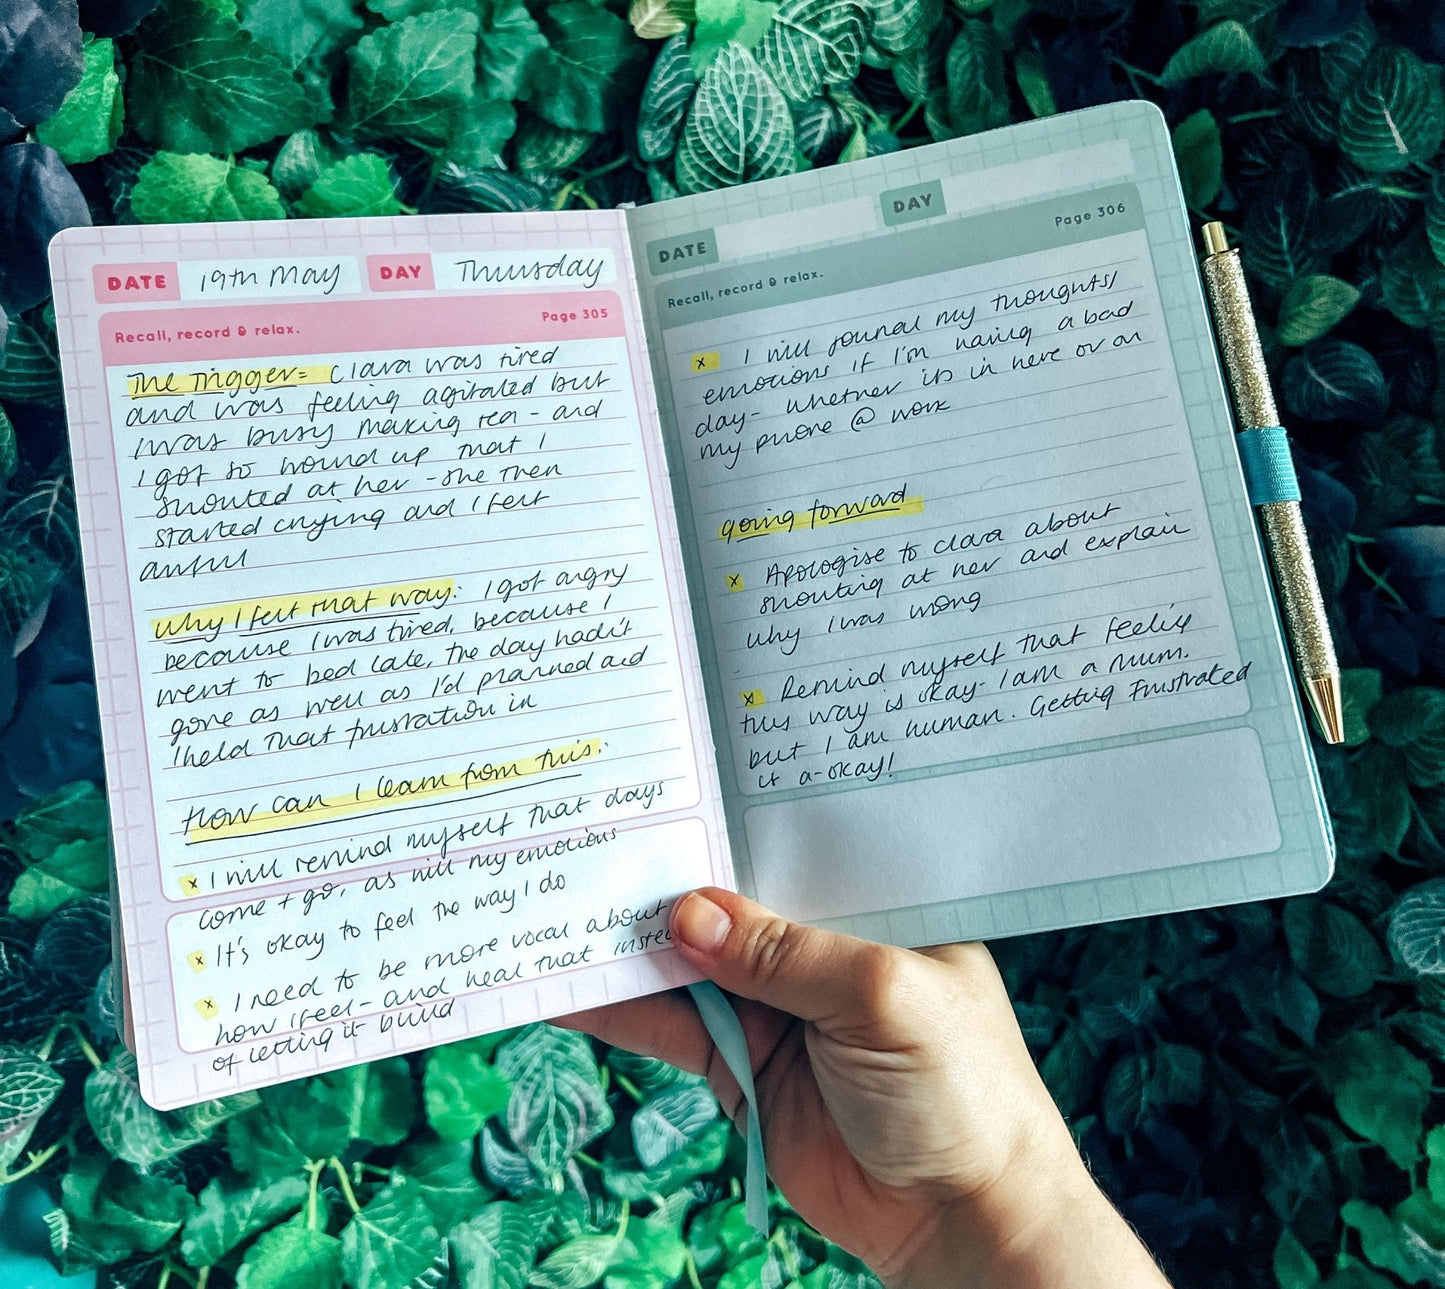 DATE 19th May DAY Thursday
Recall, record & relax. Page 305
The Trigger= Clara was tired
and was feeling agitated but
I was busy making tea - and
I got so wound up that I
shouted at her - she then
started crying and I felt
awful
Why I felt that way: I got angry
because I was tired, because I
went to bed late, the day hadn't
gone as well as I'd planned and
I held that frustration in
How can I learn from this:
x I will remind myself that days
come + go, as will my emotions
x It's okay to feel the way I do
x I need to be more vocal about
how I feel - and heal that instea
of letting it build
DATE DAY
Recall, record & relax. Page 306
x I will journal my thoughts/
emotions if I'm having a bad
day- whether it's in here or on
my phone @ work
going forward
x Apologise to Clara about
shouting at her and explain
why I was wrong
x Remind myself that feeling
this way is okay- I am a mum.
but I am human. Getting frustrated
is a-okay!